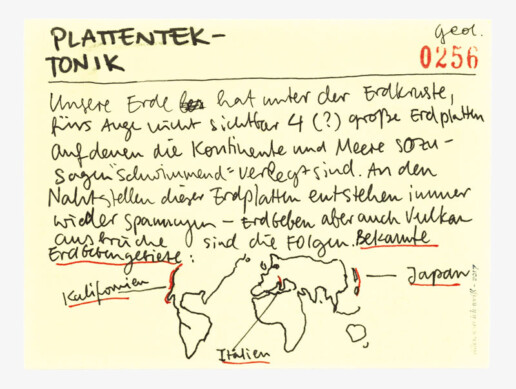 PLATTENTEK-
TONIK
Geol.
0256
Unsere Erde hat unter der Erdkruste,
fürs Auge nicht sichtbar 4 (?) große Erdplatten
auf denen die Kontinente und Meere sozu-
sagen "schwimmend" verlegt sind. An den
Nahtstellen dieser Erdplatten entstehen immer
wieder Spannungen – Erdbeben aber auch Vulkan
ausbrüche sind die Folgen. Bekannte
Erdbebengebiete:
Kalifornien
Japan
Italien